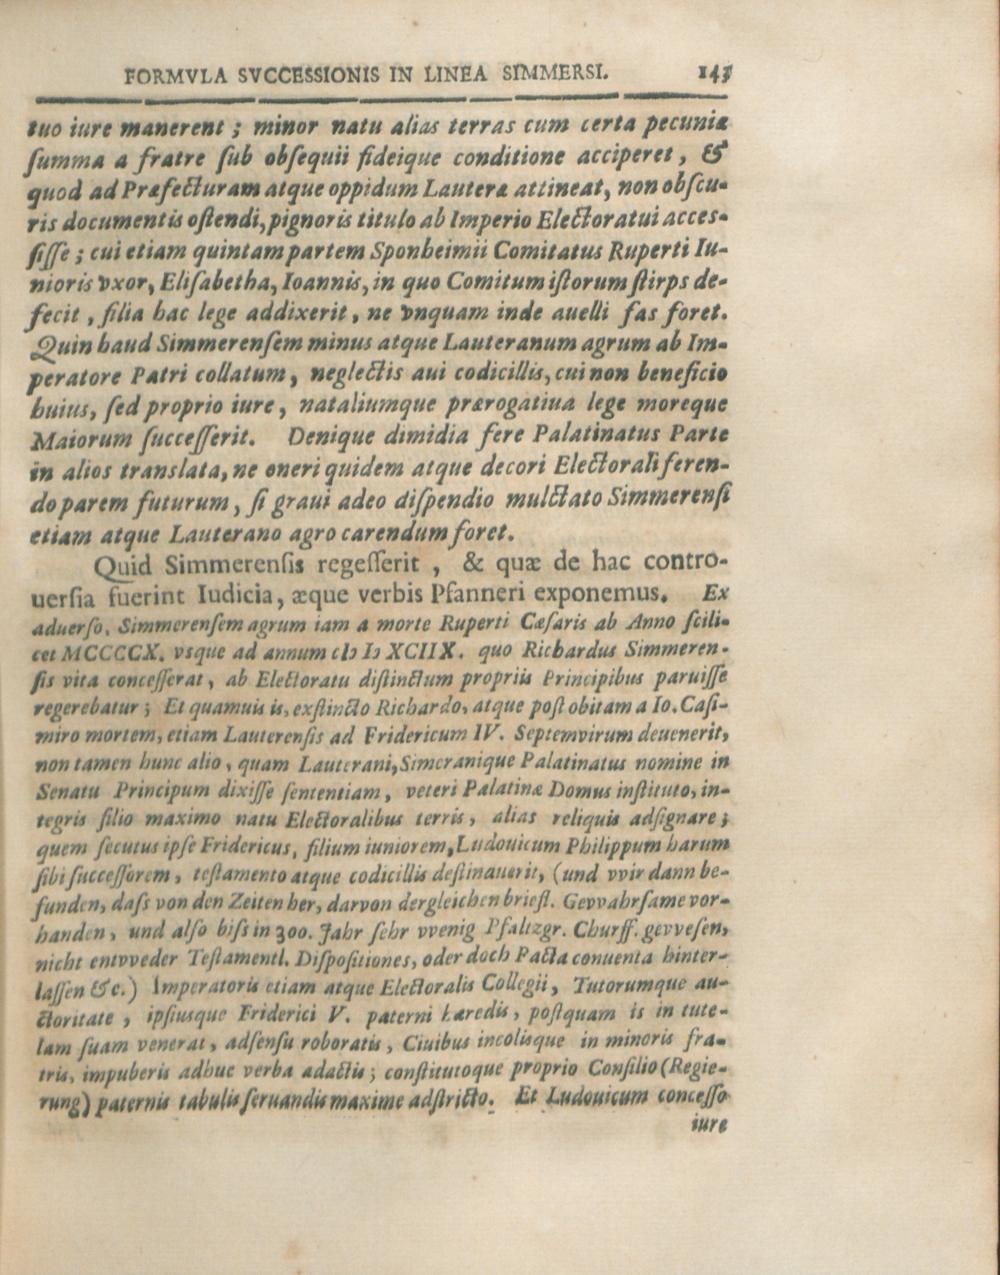 FORMVLA SVCCESSIONIS IN LINEA SIMMERSI. 143
tuo iure manerent ; minor natu alias terras cum certa pecuniæ
ſumma a fratre ſub obſequii fideique conditione acciperet, &
quod ad Præfecturam atque oppidum Lauteræ attineat, non obſcu-
ris documentis oſtendi, pignoris titulo ab Imperio Electoratui acces-
ſiſſe ; cui etiam quintam partem Sponheimii Comitatus Ruperti Iu-
nioris vxor, Eliſabetha, Ioannis, in quo Comitum iſtorum ſtirps de-
fecit , filia hac lege addixerit, ne vnquam inde auelli fas foret.
Quin haud Simmerenſem minus atque Lauteranum agrum ab Im-
peratore Patri collatum, neglectis aui codicillis, cui non beneficio
huius, ſed proprio iure, nataliumque prærogatiua lege moreque
Maiorum ſucceſſerit. Denique dimidia fere Palatinatus Parte
in alios translata, ne oneri quidem atque decori Electorali feren-
do parem futurum, ſi graui adeo diſpendio mulctato Simmerenſi
etiam atque Lauterano agro carendum foret.
Quid Simmerenſis regeſſerit , & quæ de hac contro-
uerſia fuerint Iudicia, æque verbis Pfanneri exponemus. Ex
aduerſo, Simmerenſem agrum iam a morte Ruperti Cæſaris ab Anno ſcili-
cet MCCCCX. vsque ad annum cIɔ Iɔ XCIIX. quo Richardus Simmeren-
ſis vita conceſſerat, ab Electoratu diſtinctum propriis Principibus paruiſſe
regerebatur ; Et quamuis is, exſtincto Richardo, atque poſt obitam a Io. Caſi-
miro mortem, etiam Lauterenſis ad Fridericum IV. Septemvirum deuenerit,
non tamen hunc alio, quam Lauterani, Simeranique Palatinatus nomine in
Senatu Principum dixiſſe ſententiam, veteri Palatinæ Domus inſtituto, in-
tegris filio maximo natu Electoralibus terris, alias reliquis adſignare ;
quem ſecutus ipſe Fridericus, filium iuniorem, Ludouicum Philippum harum
ſibi ſucceſſorem, teſtamento atque codicillis deſtinauerit, (und vvir dann be-
funden, daſs von den Zeiten her, darvon dergleichen briefl. Gevvahrſame vor-
handen, und alſo biſs in 300. Jahr ſehr vvenig Pfaltzgr. Churff. gevveſen,
nicht entvveder Teſtamentl. Diſpoſitiones, oder doch Pacta conuenta hinter-
laſſen &c.) Imperatoris etiam atque Electoralis Collegii, Tutorumque au-
ctoritate , ipſiusque Friderici V. paterni hæredis, poſtquam is in tute-
lam ſuam venerat, adſenſu roboratis, Ciuibus incolisque in minoris fra-
tris, impuberis adhuc verba adactis ; conſtitutoque proprio Conſilio (Regie-
rung) paternis tabulis ſeruandis maxime adſtricto. Et Ludouicum conceſſo
iure